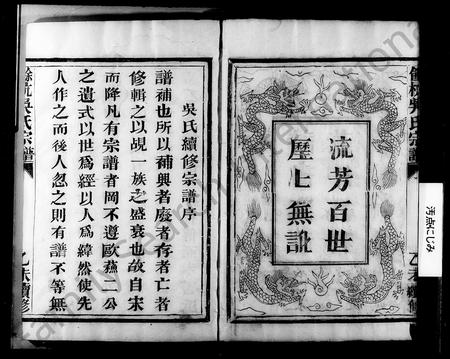 餘杭吳氏宗譜
流芳百世
歷久無訛
乙未續修
汚点にじみ
吳氏續修宗譜序
譜補也所以補興者廢者存者亡者
修輯之以覘一族之盛衰也故自宋
而降凡有宗譜者罔不遵歐蘇二公
之遺式以世爲經以人爲緯然使先
人作之而後人忽之則有譜不等無
餘杭吳氏宗譜
乙未續修